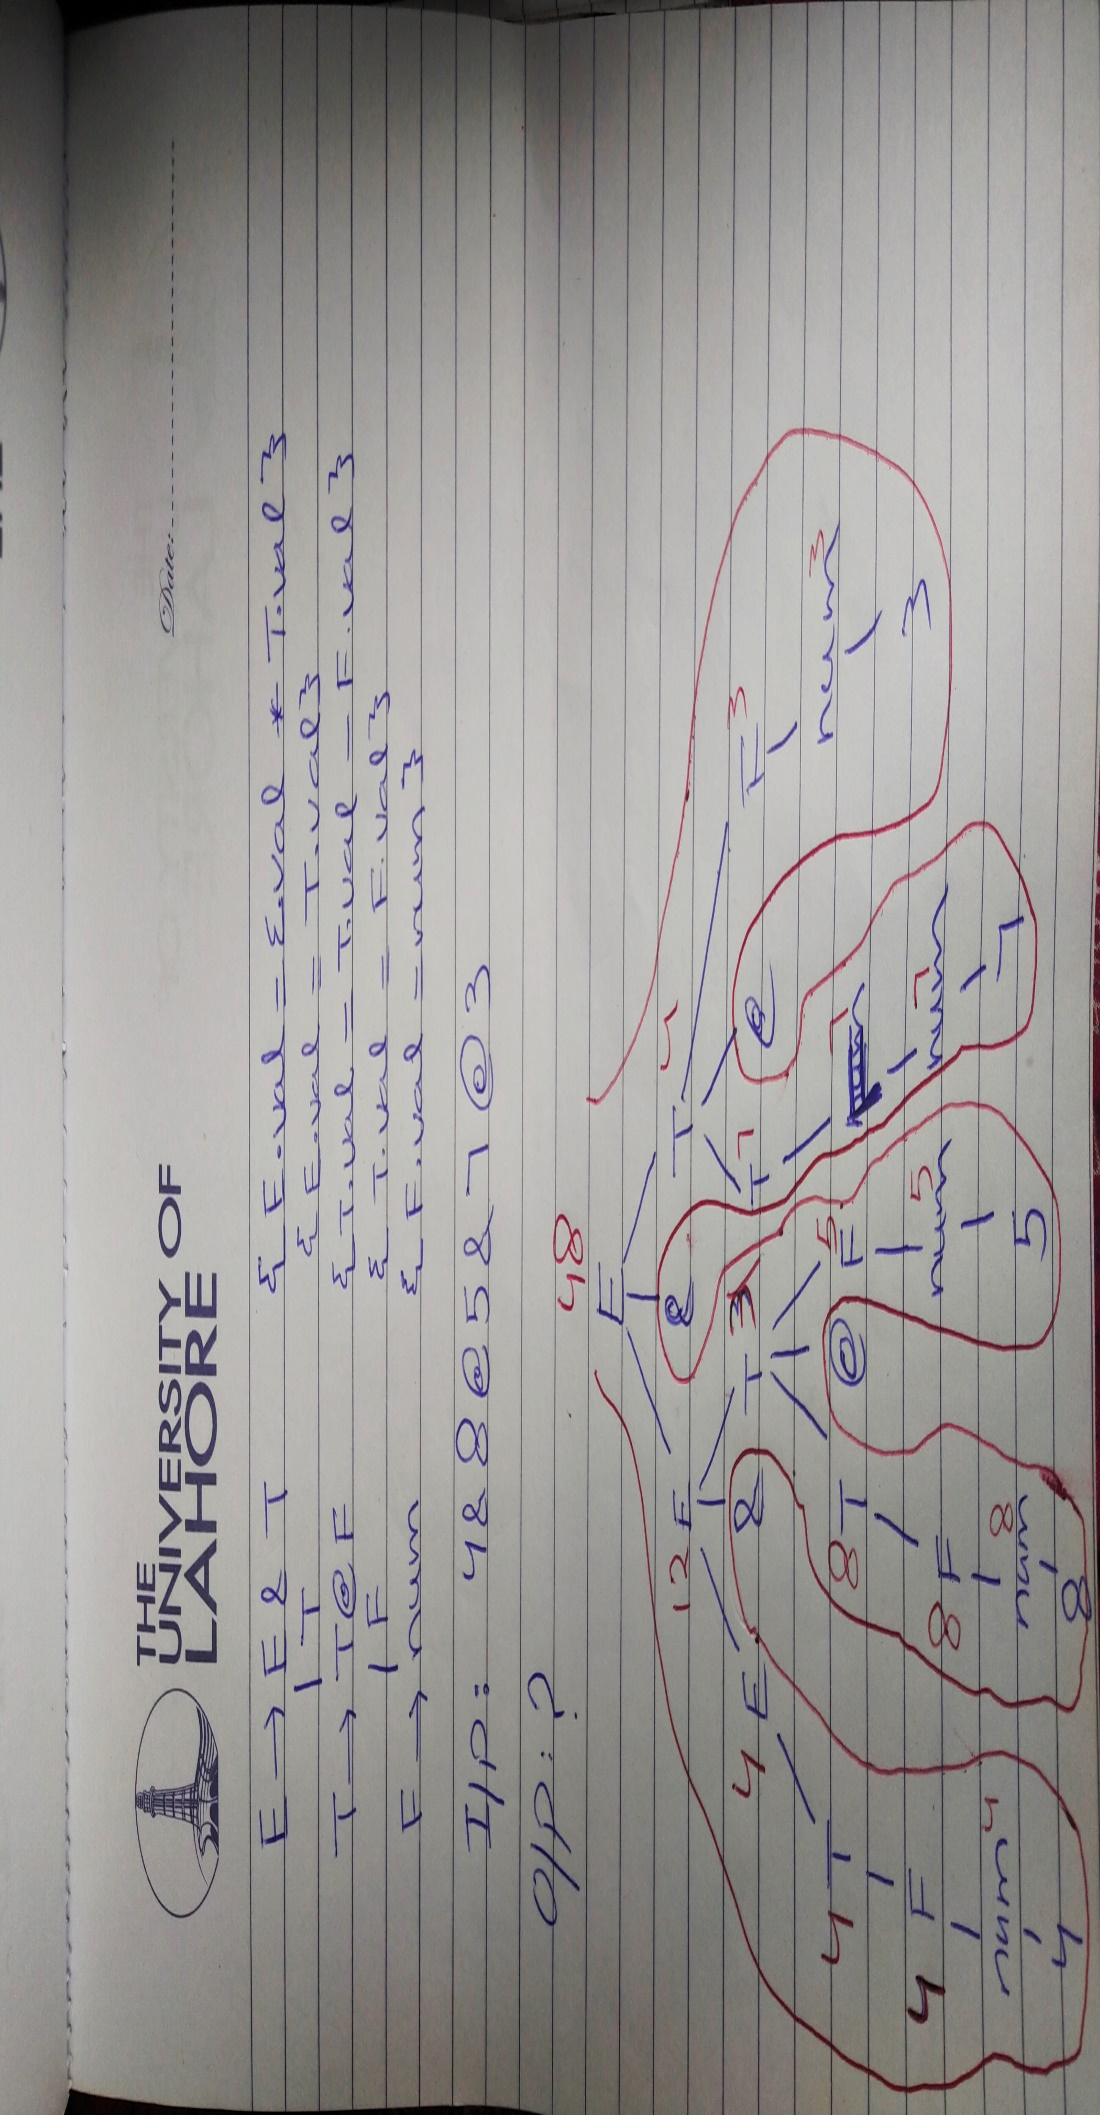 THE
UNIVERSITY OF
LAHORE
Date:
E → E & T { E.val = E.val * T.val }
| T { E.val = T.val }
T → T @ F { T.val = T.val - F.val }
| F { T.val = F.val }
F → num { F.val = num }
I/P: 4 & 8 @ 5 & 7 @ 3
O/P: ?
48
E
12 E & T 4
4 E & T 3 T 7 @ F 3
4 T 8 T @ F 5 7 num 3
4 F 8 F num 5 num 7 3
num 4 num 8 5 7
4 8